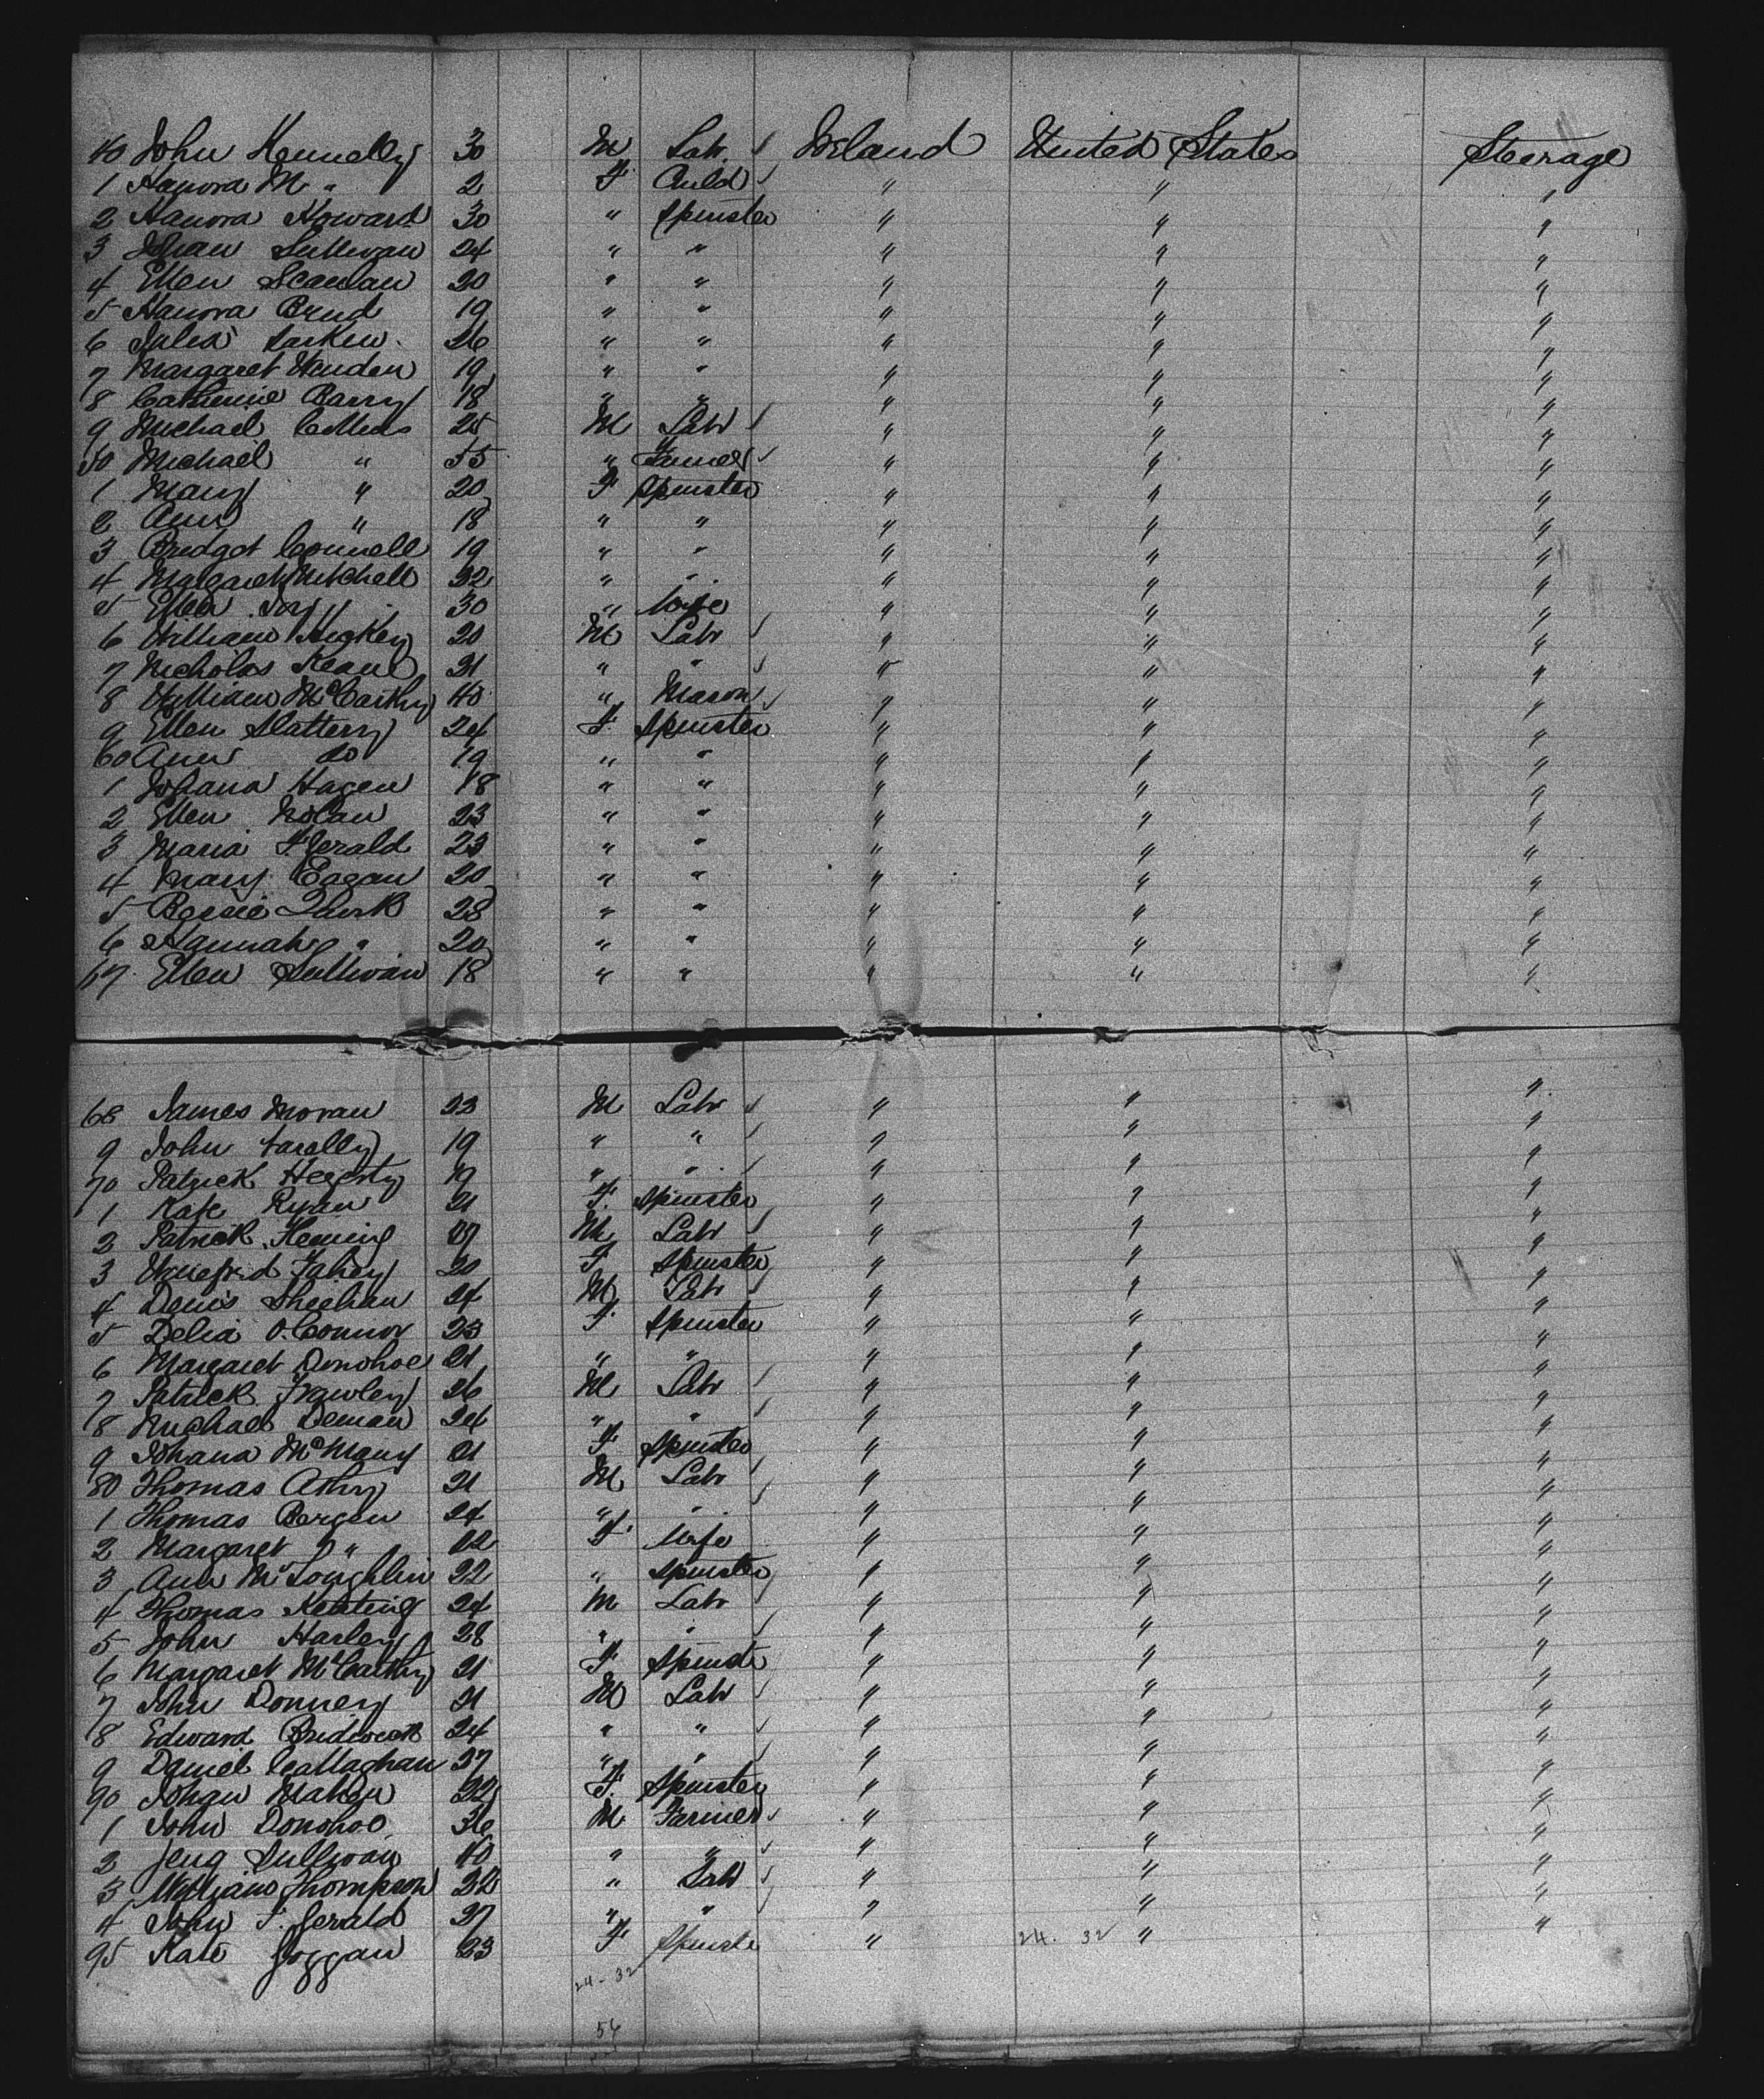 40 John Kennelly 30 M Labr. Ireland United States Steerage
1 Hanora M " 2 F Child " " "
2 Hanora Howard 30 " Spinster " " "
3 Johan Sullivan 24 " " " " "
4 Ellen Scanlan 20 " " " " "
5 Hanora 19 " " " " "
6 Julia Larkin 26 " " " " "
7 Margaret 19 " " " " "
8 Catherine Barry 18 " " " " "
9 Michael Collins 25 M Labr " " "
50 Michael " 55 " Farmer " " "
1 Mary " 20 F Spinster " " "
2 Ann " 18 " " " " "
3 Bridget Connell 19 " " " " "
4 Margaret Mitchell 32 " " " " "
5 Ellen 30 " Wife " " "
6 William Hickey 20 M Labr " " "
7 Nicholas Keane 21 " " " " "
8 William McCarthy 40 " Mason " " "
9 Ellen Slattery 24 F. Spinster " " "
60 Ann do 19 " " " " "
1 Johana Hagen 18 " " " " "
2 Ellen Nolan 23 " " " " "
3 Maria F.Gerald 23 " " " " "
4 Mary Eagan 20 " " " " "
5 Bessie Quirk 28 " " " " "
6 Hannah " 20 " " " " "
67 Ellen Sullivan 18 " " " " "
68 James Moran 23 M Labr " " "
9 John 19 " " " " "
70 Patrick Hegerty 19 " " " " "
1 Kate Ryan 21 F. Spinster " " "
2 Patrick Fleming M Labr " " "
3 Winefrid Fahey 20 F. Spinster " " "
4 Denis Sheehan 24 M Labr " " "
5 Delia O.Connor 23 F. Spinster " " "
6 Margaret Donohoe 21 " " " " "
7 Patrick Frawley 26 M Labr " " "
8 Michael 24 " " " " "
9 Johana 21 F. Spinster " " "
80 Thomas 21 M Labr " " "
1 Thomas Bergen 24 " " " " "
2 Margaret " 22 F. Wife " " "
3 Ann McLoughlin 22 " Spinster " " "
4 Thomas Keating 24 M Labr " " "
5 John Harley 28 " " " " "
6 Margaret McCarthy 21 F. Spinste " " "
7 John 21 M Labr " " "
8 Edward 24 " " " " "
9 Daniel Callaghan 27 " " " " "
90 Johan Maher 22 F. Spinster " " "
1 John Donohoe 36 M Farmer " " "
2 Sullivan 40 " " " " "
3 William Thompson 22 " Labr " " "
4 John F. Gerald 27 " " " " "
95 Kate 23 F Spinste " 24. 32 "
24-32